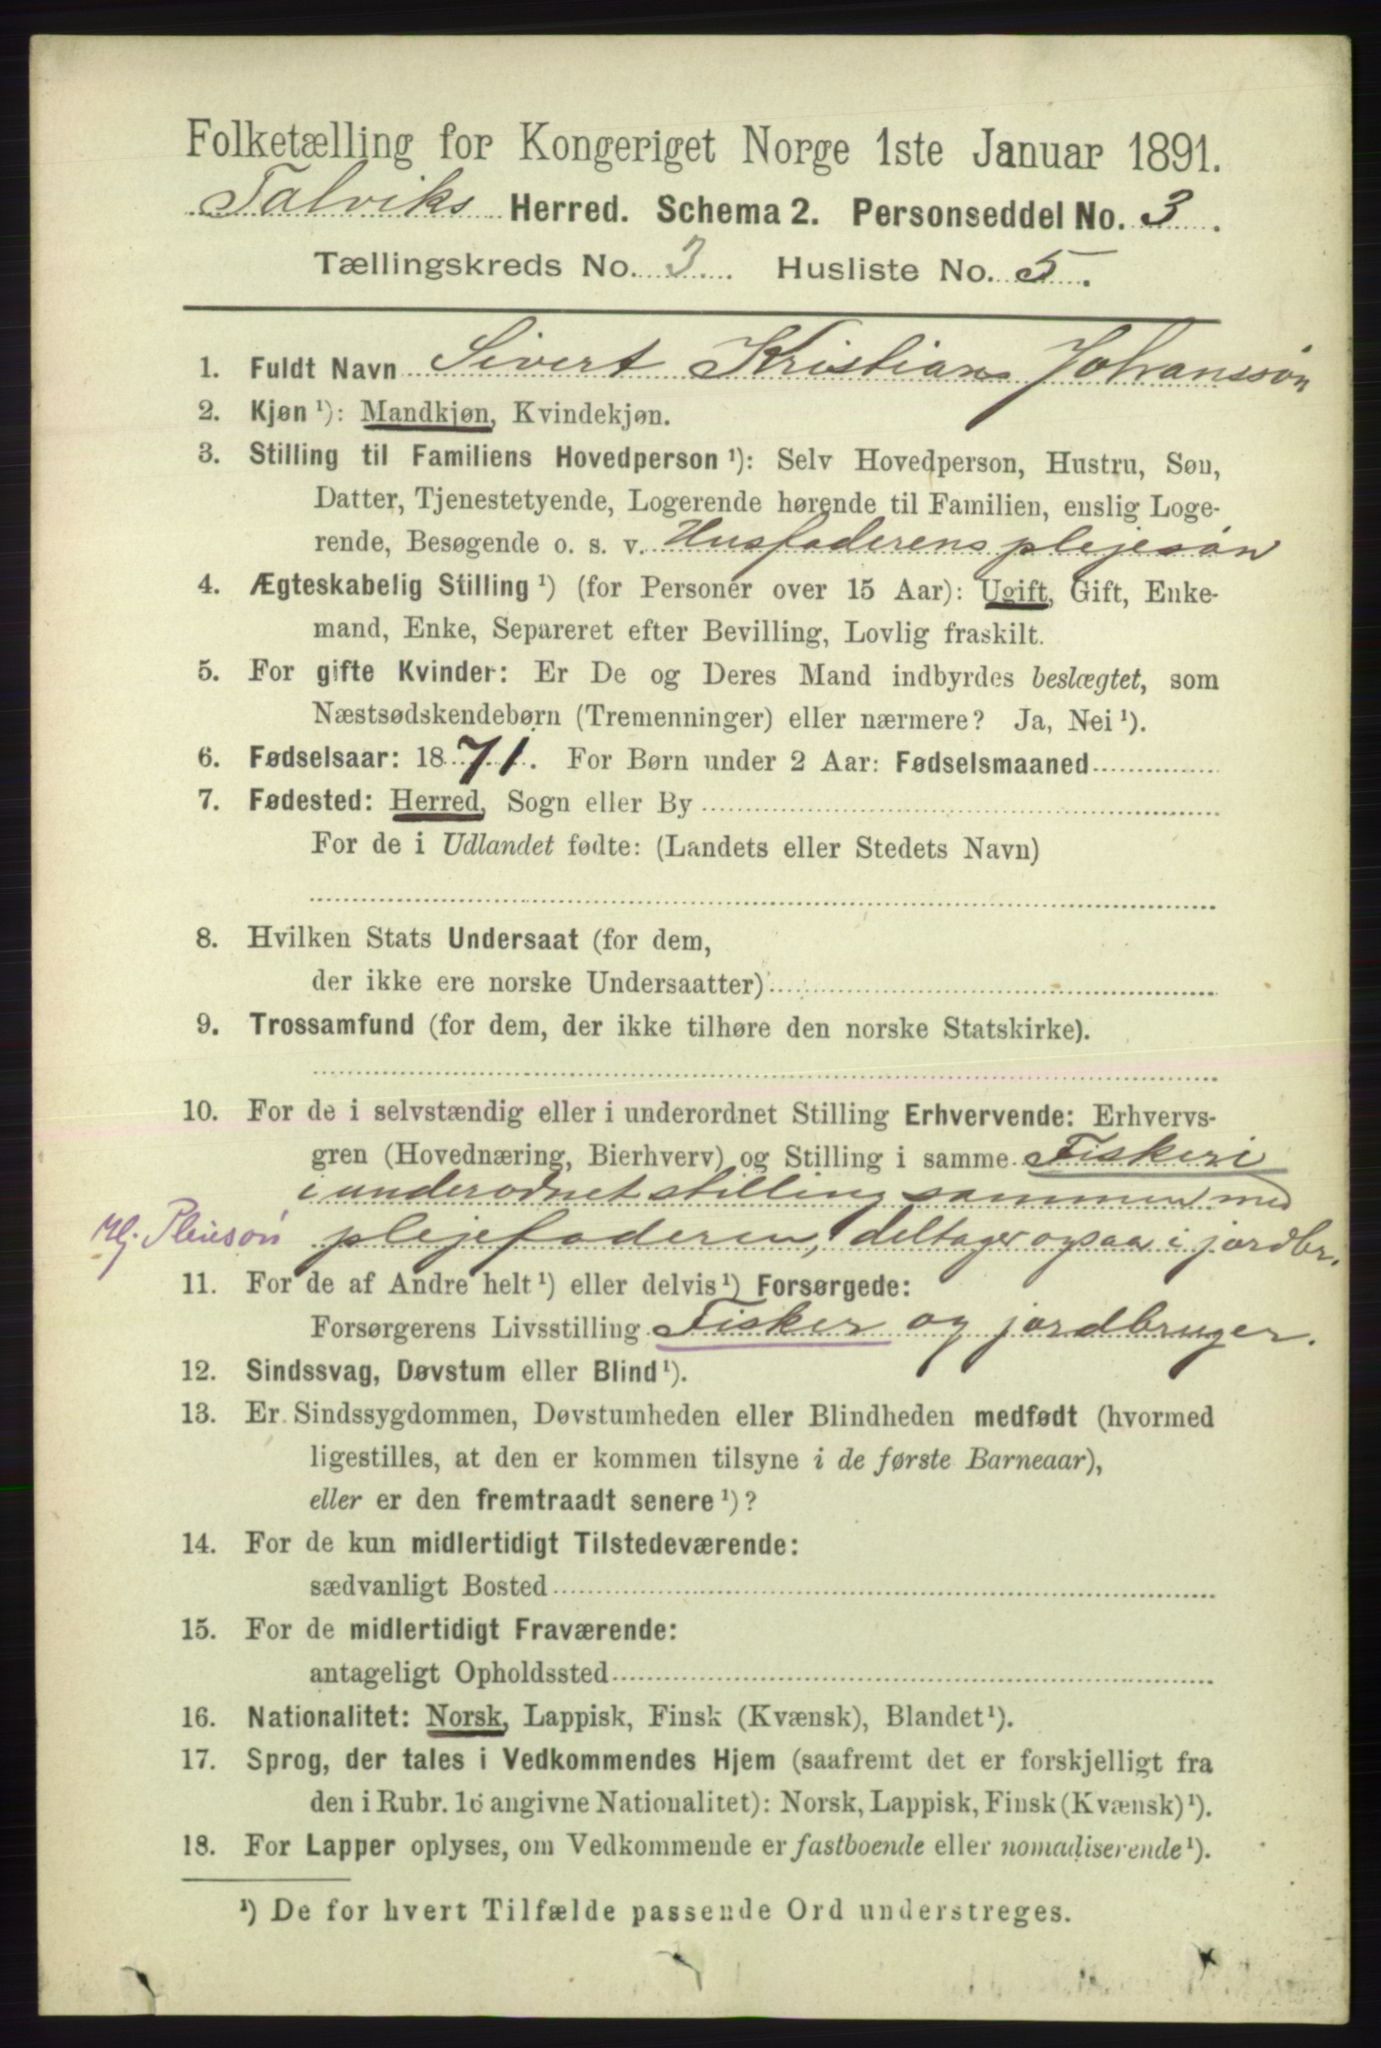 Folketælling for Kongeriget Norge 1ste Januar 1891.
Talviks Herred. Schema 2. Personseddel No. 3.
Tællingskreds No. 3. Husliste No. 5.
1. Fuldt Navn Sivert Kristian Johanssøn
2. Kjøn ¹): Mandkjøn, Kvindekjøn.
3. Stilling til Familiens Hovedperson ¹): Selv Hovedperson, Hustru, Søn,
Datter, Tjenestetyende, Logerende hørende til Familien, enslig Loge-
rende, Besøgende o. s. v. Husfaderens plejesøn
4. Ægteskabelig Stilling ¹) (for Personer over 15 Aar): Ugift, Gift, Enke-
mand, Enke, Separeret efter Bevilling, Lovlig fraskilt.
5. For gifte Kvinder: Er De og Deres Mand indbyrdes beslægtet, som
Næstsødskendebørn (Tremenninger) eller nærmere? Ja, Nei ¹).
6. Fødselsaar: 1871. For Børn under 2 Aar: Fødselsmaaned
7. Fødested: Herred, Sogn eller By
For de i Udlandet fødte: (Landets eller Stedets Navn)
8. Hvilken Stats Undersaat (for dem,
der ikke ere norske Undersaatter)
9. Trossamfund (for dem, der ikke tilhøre den norske Statskirke).
10. For de i selvstændig eller i underordnet Stilling Erhvervende: Erhvervs-
gren (Hovednæring, Bierhverv) og Stilling i samme Fiskeri
i underordnet stilling sammen med
plejefaderen, deltager ogsaa i jordbr.
11. For de af Andre helt ¹) eller delvis ¹) Forsørgede:
Forsørgerens Livsstilling Fisker og jordbruger.
12. Sindssvag, Døvstum eller Blind ¹).
13. Er Sindssygdommen, Døvstumheden eller Blindheden medfødt (hvormed
ligestilles, at den er kommen tilsyne i de første Barneaar),
eller er den fremtraadt senere ¹)?
14. For de kun midlertidigt Tilstedeværende:
sædvanligt Bosted
15. For de midlertidigt Fraværende:
antageligt Opholdssted
16. Nationalitet: Norsk, Lappisk, Finsk (Kvænsk), Blandet ¹).
17. Sprog, der tales i Vedkommendes Hjem (saafremt det er forskjelligt fra
den i Rubr. 16 angivne Nationalitet): Norsk, Lappisk, Finsk (Kvænsk) ¹).
18. For Lapper oplyses, om Vedkommende er fastboende eller nomadiserende ¹).
¹) De for hvert Tilfælde passende Ord understreges.